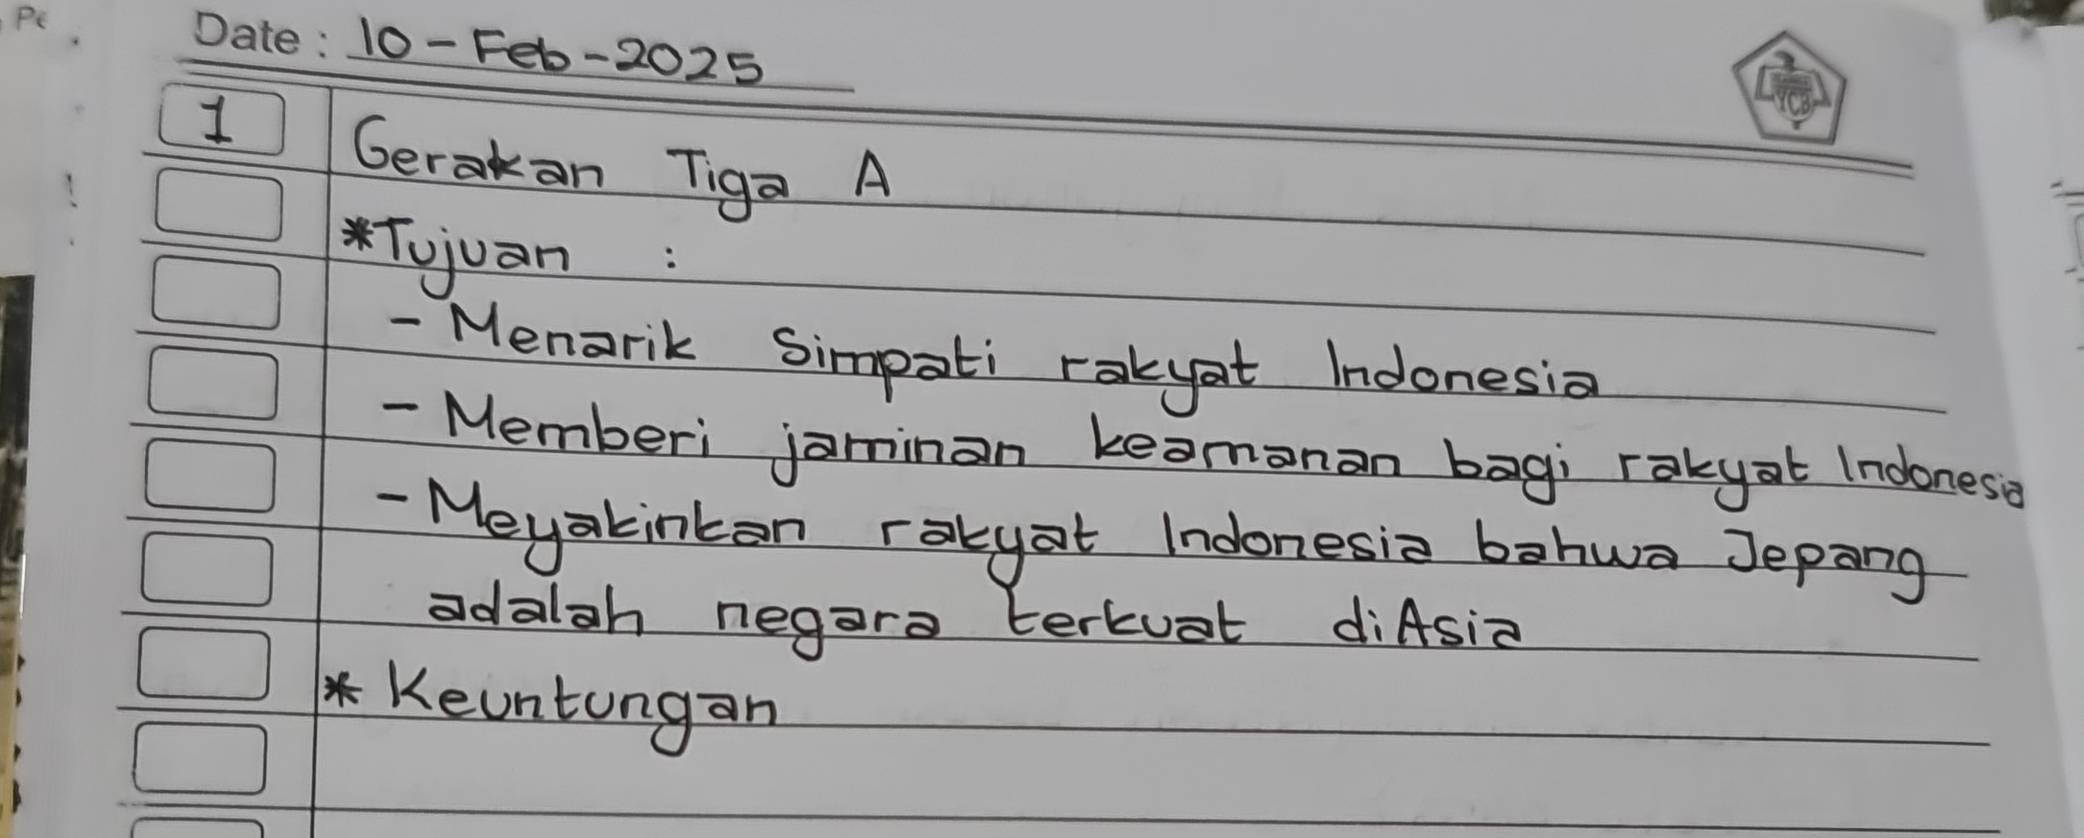 Pe
Date: 10-Feb-2025
YCB
1 Gerakan Tiga A
*Tujuan :
- Menarik Simpati rakyat Indonesia
- Memberi jaminan keamanan bagi rakyat Indonesia
- Meyakinkan rakyat Indonesia bahwa Jepang
adalah negara terkuat diAsia
* Keuntungan